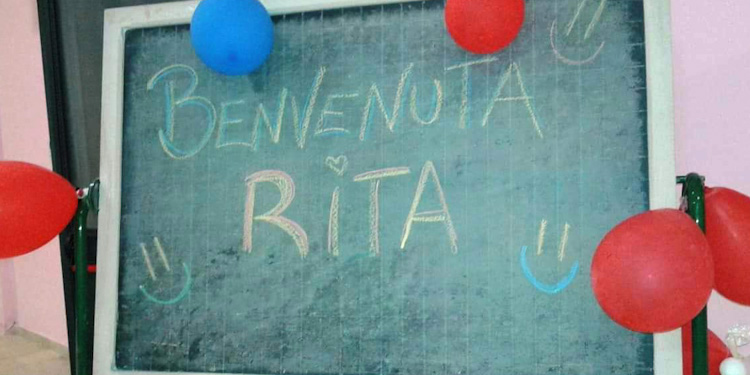 BENVENUTA
RITA